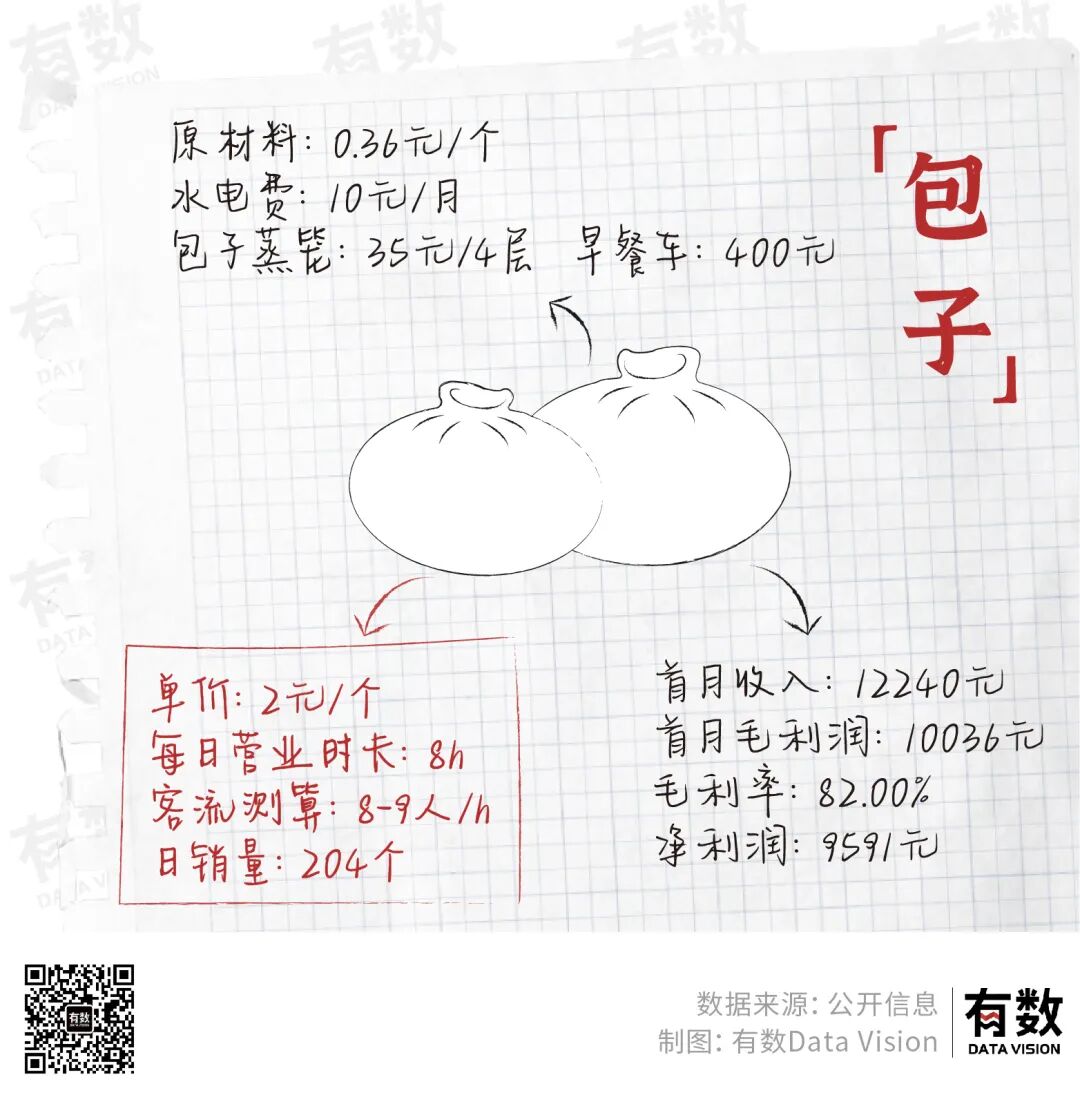 「包子」
原材料：0.36元/个
水电费：10元/月
包子蒸笼：35元/4层 早餐车：400元
单价：2元/个
每日营业时长：8h
客流测算：8-9人/h
日销量：204个
首月收入：12240元
首月毛利润：10036元
毛利率：82.00%
净利润：9591元
数据来源：公开信息
制图：有数Data Vision
有数
DATA VISION